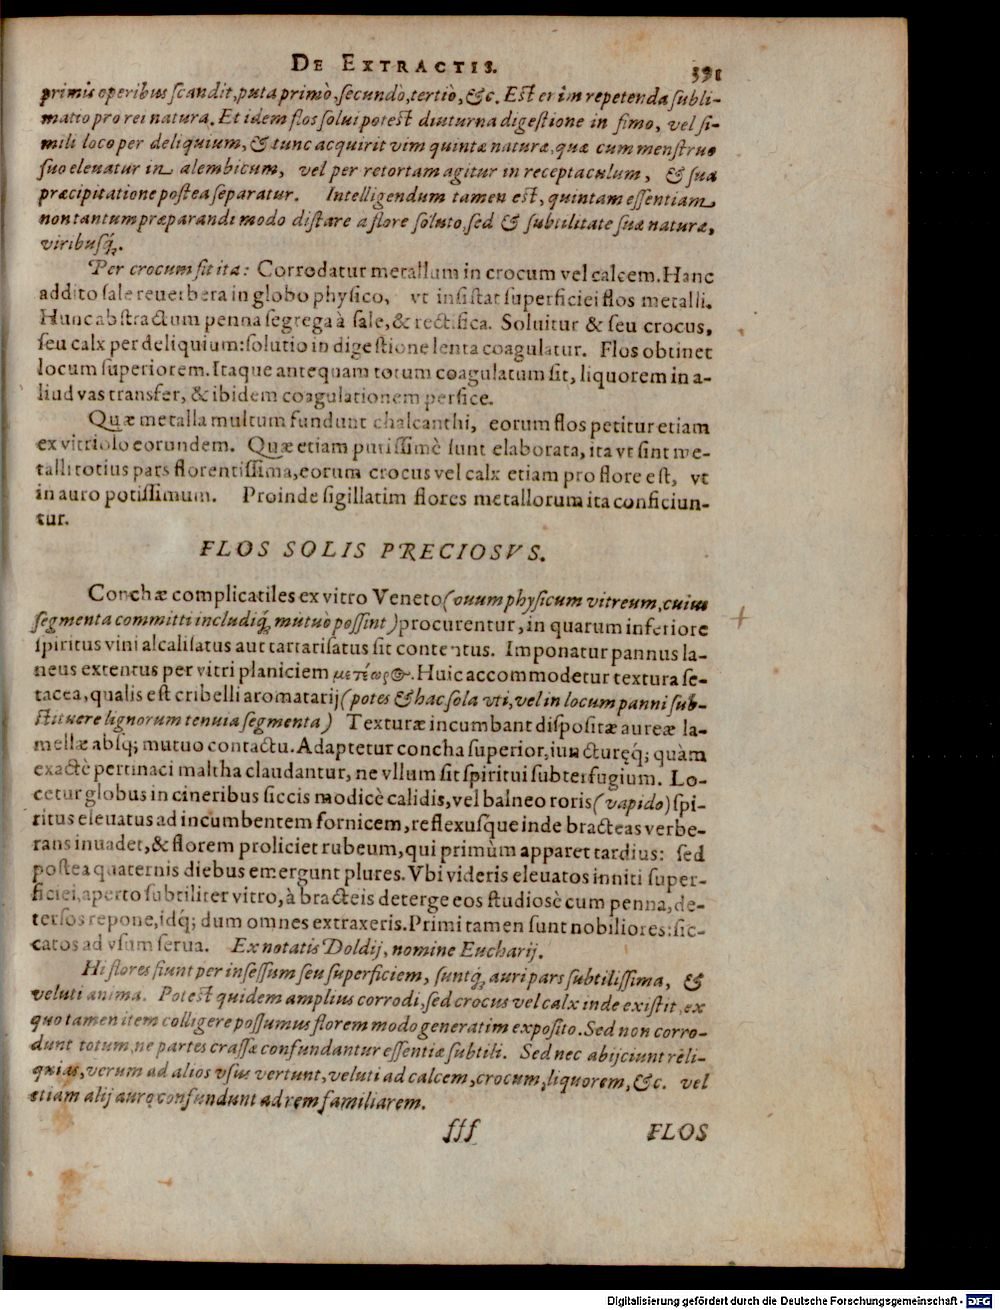 DE EXTRACTIS. 391
primis operibus scandit, puta primò, secundò, tertiò, &c. Est enim repetenda subli-
matio pro rei natura. Et idem flos solui potest diuturna digestione in fimo, vel si-
mili loco per deliquium, & tunc acquirit vim quintæ naturæ, quæ cum menstruo
suo eleuatur in alembicum, vel per retortam agitur in receptaculum, & sua
præcipitatione postea separatur. Intelligendum tamen est, quintam essentiam
non tantum præparandi modo distare a flore soluto, sed & subtilitate suæ naturæ,
viribusq́;.
Per crocum fit ita: Corrodatur metallum in crocum vel calcem. Hanc
addito sale reuerbera in globo physico, vt insistat superficiei flos metalli.
Hunc abstractum penna segrega à sale, & rectifica. Soluitur & seu crocus,
seu calx per deliquium: solutio in digestione lenta coagulatur. Flos obtinet
locum superiorem. Itaque antequam totum coagulatum sit, liquorem in a-
liud vas transfer, & ibidem coagulationem perfice.
Quæ metalla multum fundunt chalcanthi, eorum flos petitur etiam
ex vitriolo eorundem. Quæ etiam purissimè sunt elaborata, ita vt sint me-
talli totius pars florentissima, eorum crocus vel calx etiam pro flore est, vt
in auro potissimum. Proinde sigillatim flores metallorum ita conficiun-
tur.
FLOS SOLIS PRECIOSVS.
Conchæ complicatiles ex vitro Veneto (ouum physicum vitreum, cuius
segmenta committi includiq́; mutuò possint) procurentur, in quarum inferiore
spiritus vini alcalisatus aut tartarisatus sit contentus. Imponatur pannus la-
neus extentus per vitri planiciem μετέωρος. Huic accommodetur textura se-
tacea, qualis est cribelli aromatarij (potes & hac sola vti, vel in locum panni sub-
stituere lignorum tenuia segmenta) Texturæ incumbant dispositæ aureæ la-
mellæ absq; mutuo contactu. Adaptetur concha superior, iuncturęq́; quàm
exactè pertinaci maltha claudantur, ne vllum sit spiritui subterfugium. Lo-
cetur globus in cineribus siccis modicè calidis, vel balneo roris (vapido) spi-
ritus eleuatus ad incumbentem fornicem, reflexusque inde bracteas verbe-
rans inuadet, & florem proliciet rubeum, qui primùm apparet tardius: sed
postea quaternis diebus emergunt plures. Vbi videris eleuatos inniti super-
ficiei, aperto subtiliter vitro, à bracteis deterge eos studiosè cum penna, de-
tersos repone, idq́; dum omnes extraxeris. Primi tamen sunt nobiliores: sic-
catos ad vsum serua. Ex notatis Doldij, nomine Eucharij.
Hi flores fiunt per insessum seu superficiem, suntq́; auri pars subtilissima, &
veluti anima. Potest quidem amplius corrodi, sed crocus vel calx inde existit, ex
quo tamen item colligere possumus florem modo generatim exposito. Sed non corro-
dunt totum, ne partes crassæ confundantur essentiæ subtili. Sed nec abijciunt reli-
quias, verum ad alios vsus vertunt, veluti ad calcem, crocum, liquorem, &c. vel
etiam alij auro confundunt ad rem familiarem.
fff FLOS
Digitalisierung gefördert durch die Deutsche Forschungsgemeinschaft - DFG